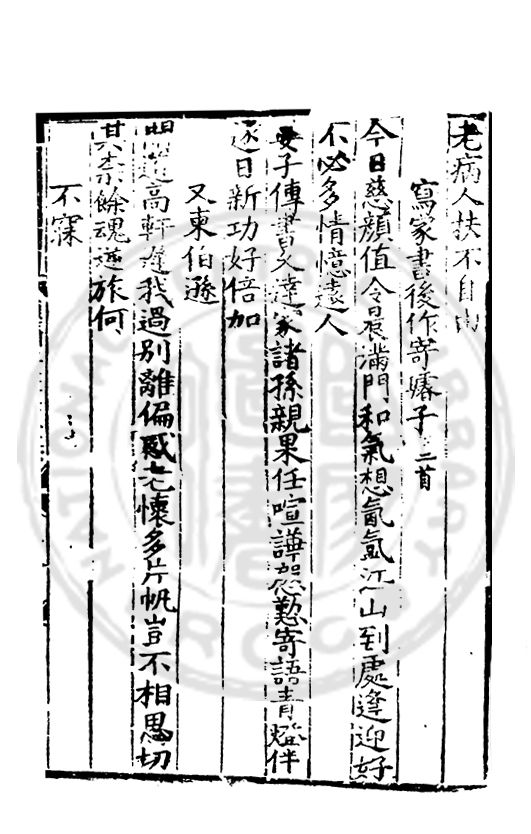 老病人扶不自由
寫家書後作寄子二首
今日慈顏值令晨滿門和氣想氤氳江山到處逢迎好
不必多情憶遠人
妻子傳書又達家諸孫親果任喧譁慇懃寄語青燈伴
逐日新功好倍加
又柬伯遜
高軒我過別離偏感老懷多片帆豈不相思切
其奈餘魂旅何
不寐